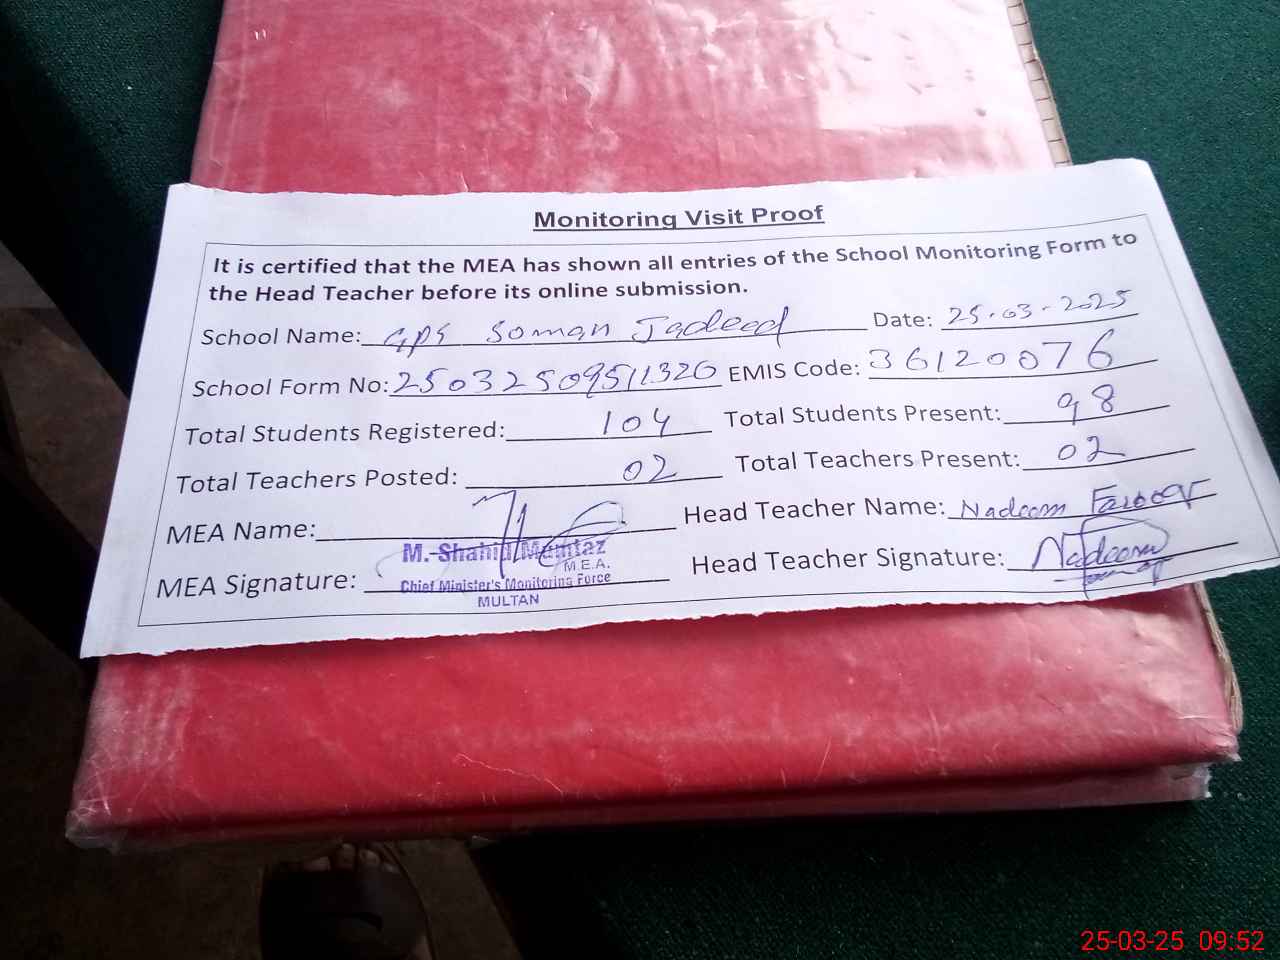 Monitoring Visit Proof
It is certified that the MEA has shown all entries of the School Monitoring Form to
the Head Teacher before its online submission.
School Name: GPS Soman Jadeed Date: 25-03-2025
School Form No: 25032509511326 EMIS Code: 36120076
Total Students Registered: 104 Total Students Present: 98
Total Teachers Posted: 02 Total Teachers Present: 02
MEA Name: Head Teacher Name: Nadeem Farooq
M. Shahid Mumtaz
M.E.A.
MEA Signature: Head Teacher Signature: Nadeem
Chief Minister's Monitoring Force
MULTAN
25-03-25 09:52